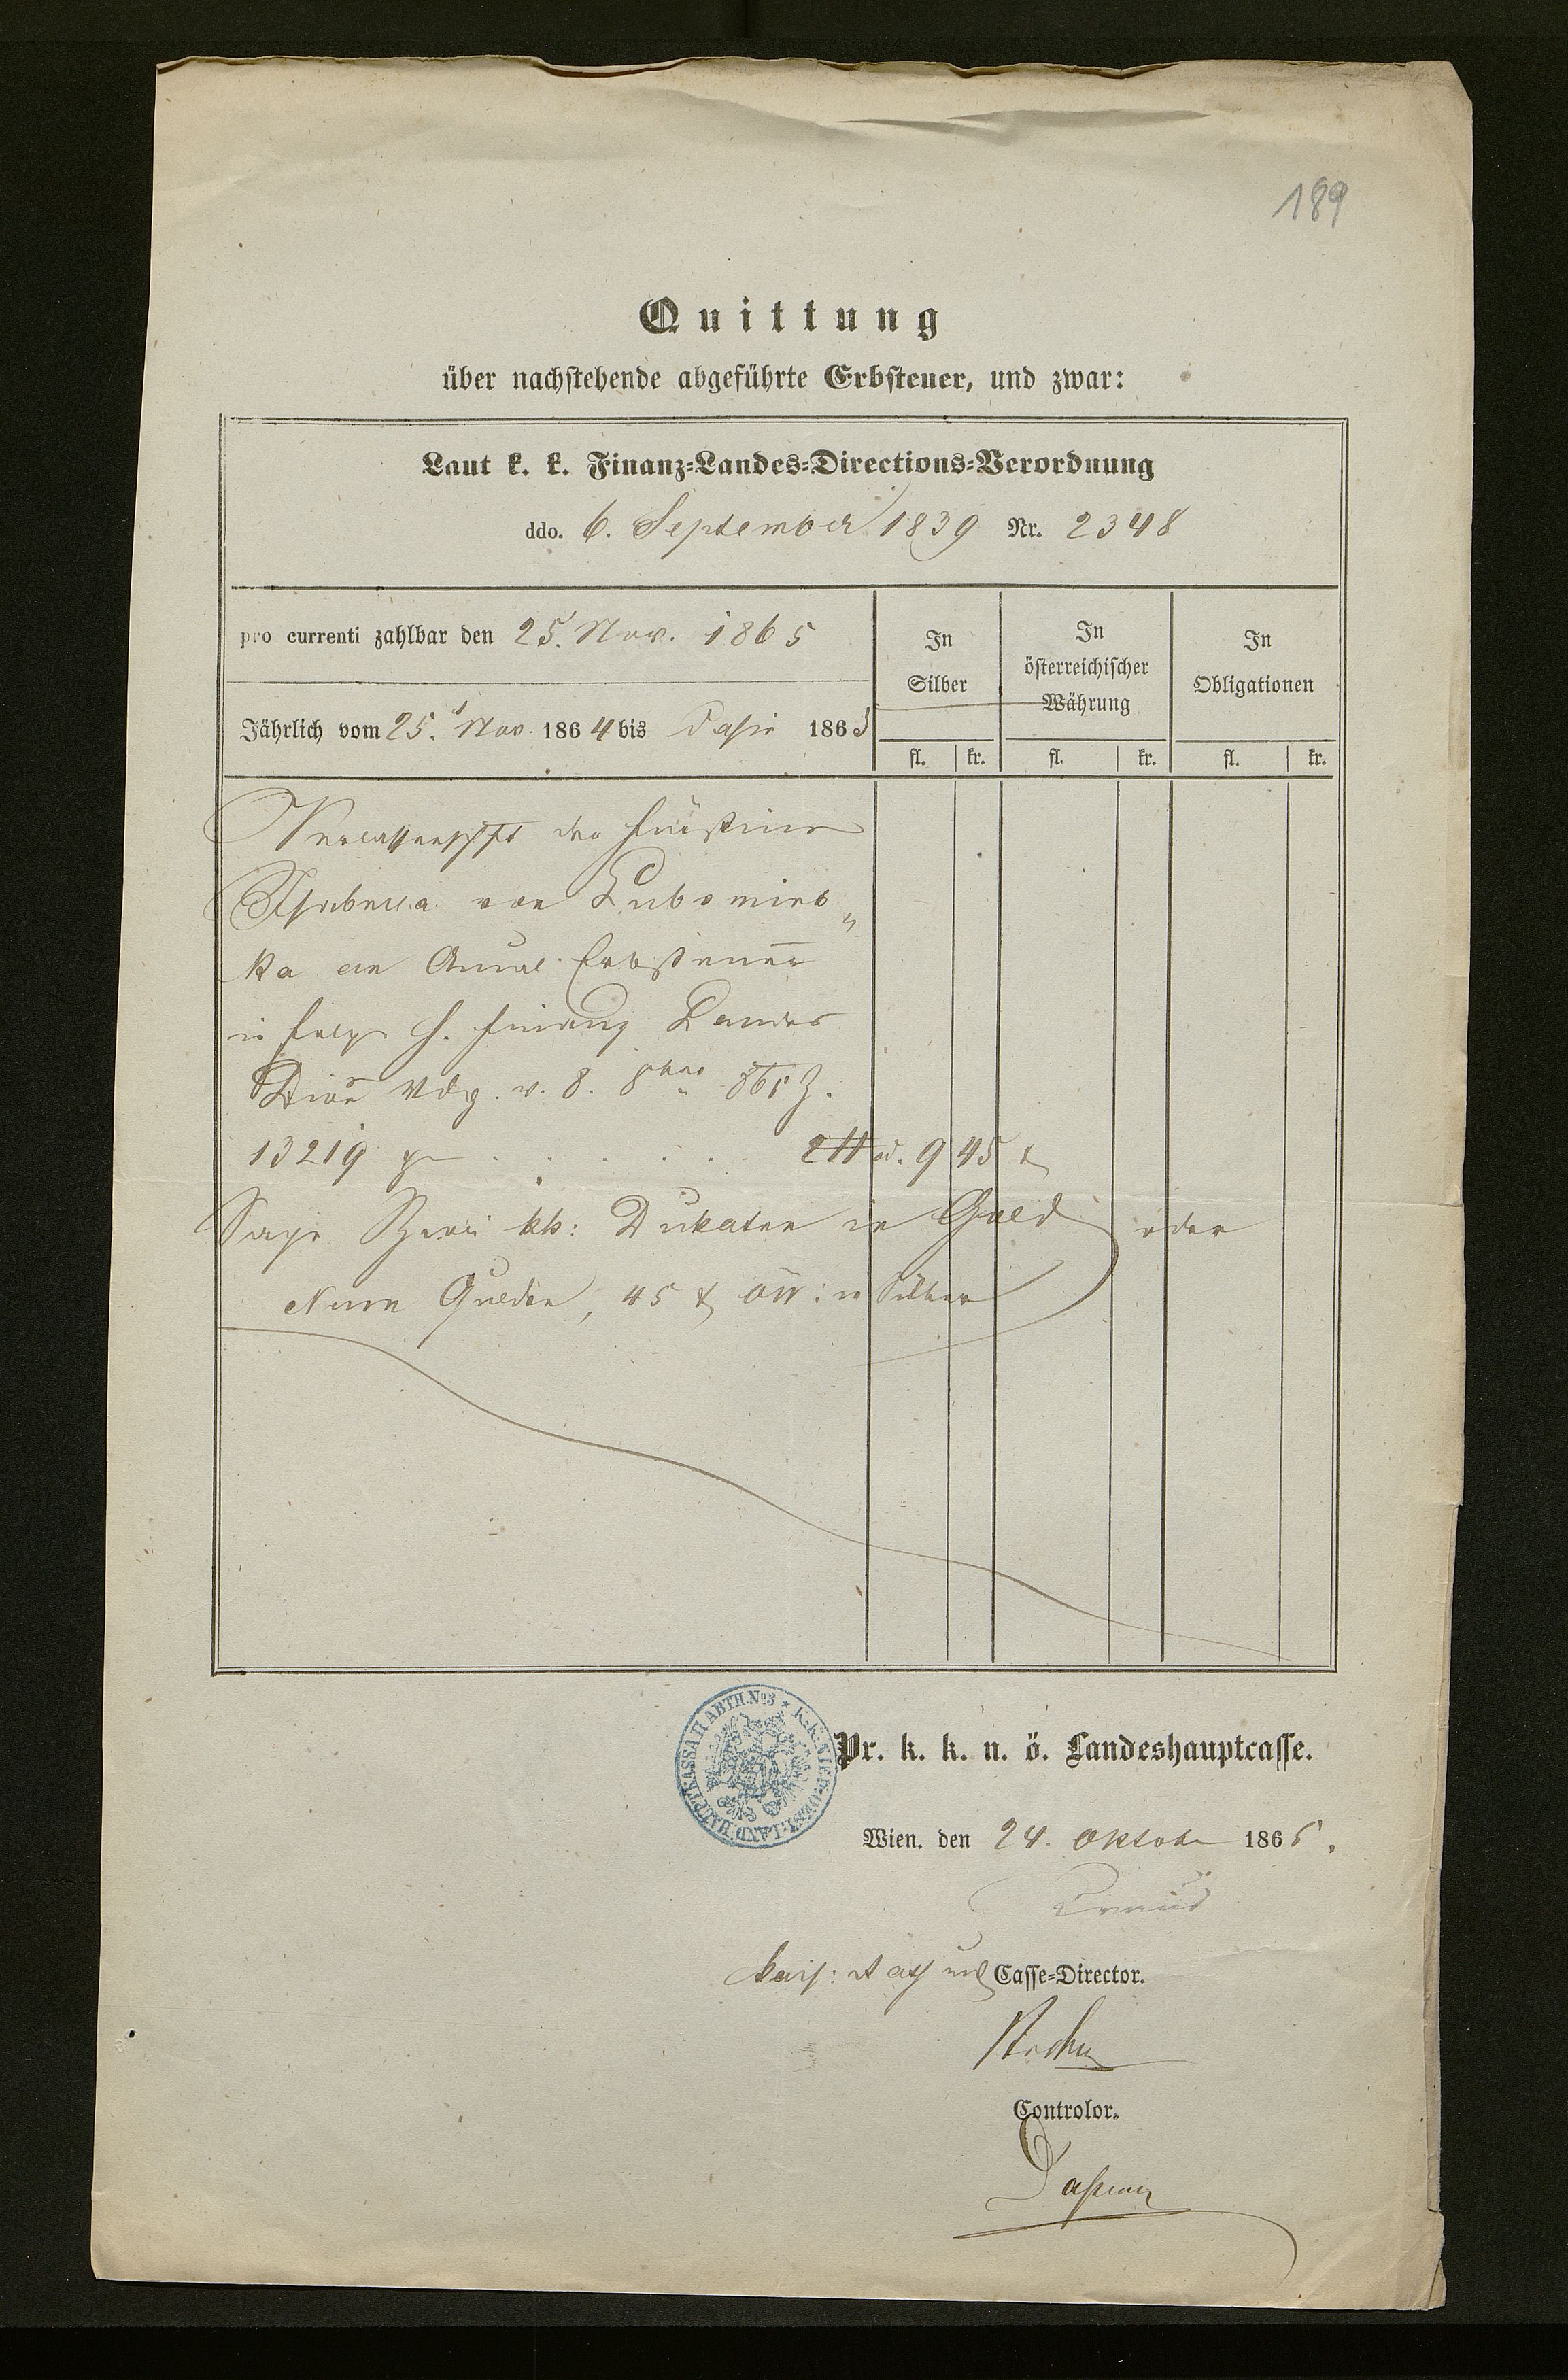 189
Quittung
über nachstehende abgeführte Erbsteuer, und zwar:
Laut k. k. Finanz=Landes=Directions=Verordnung
ddo. 6. September 1839 Nr. 2348
pro currenti zahlbar den 25. Nov. 1865
Jährlich vom 25. Nov. 1864 bis dahin 1865
In Silber
In österreichischer Währung
In Obligationen
fl. kr. fl. kr. fl. kr.
Verlassenschaft der Fürstinn
Isabella von Lubomirs
ka an Erbsteuer
in Folge h. Finanz Landes
Dion Vdg. v. 8. 8ber 865 Z.
13219 pr . . . . . 2 # od. 9 45 x
Sage Zwei kk: Dukaten in Gold oder
Neun Gulden, 45 x öW: in Silber
K.K. NIED. OEST. LAND. HAUPT KASSA II ABTH. No 3
Pr. k. k. n. ö. Landeshauptcasse.
Wien. den 24. Oktober 1865.
Kais: Rath und Casse=Director.
Controlor.